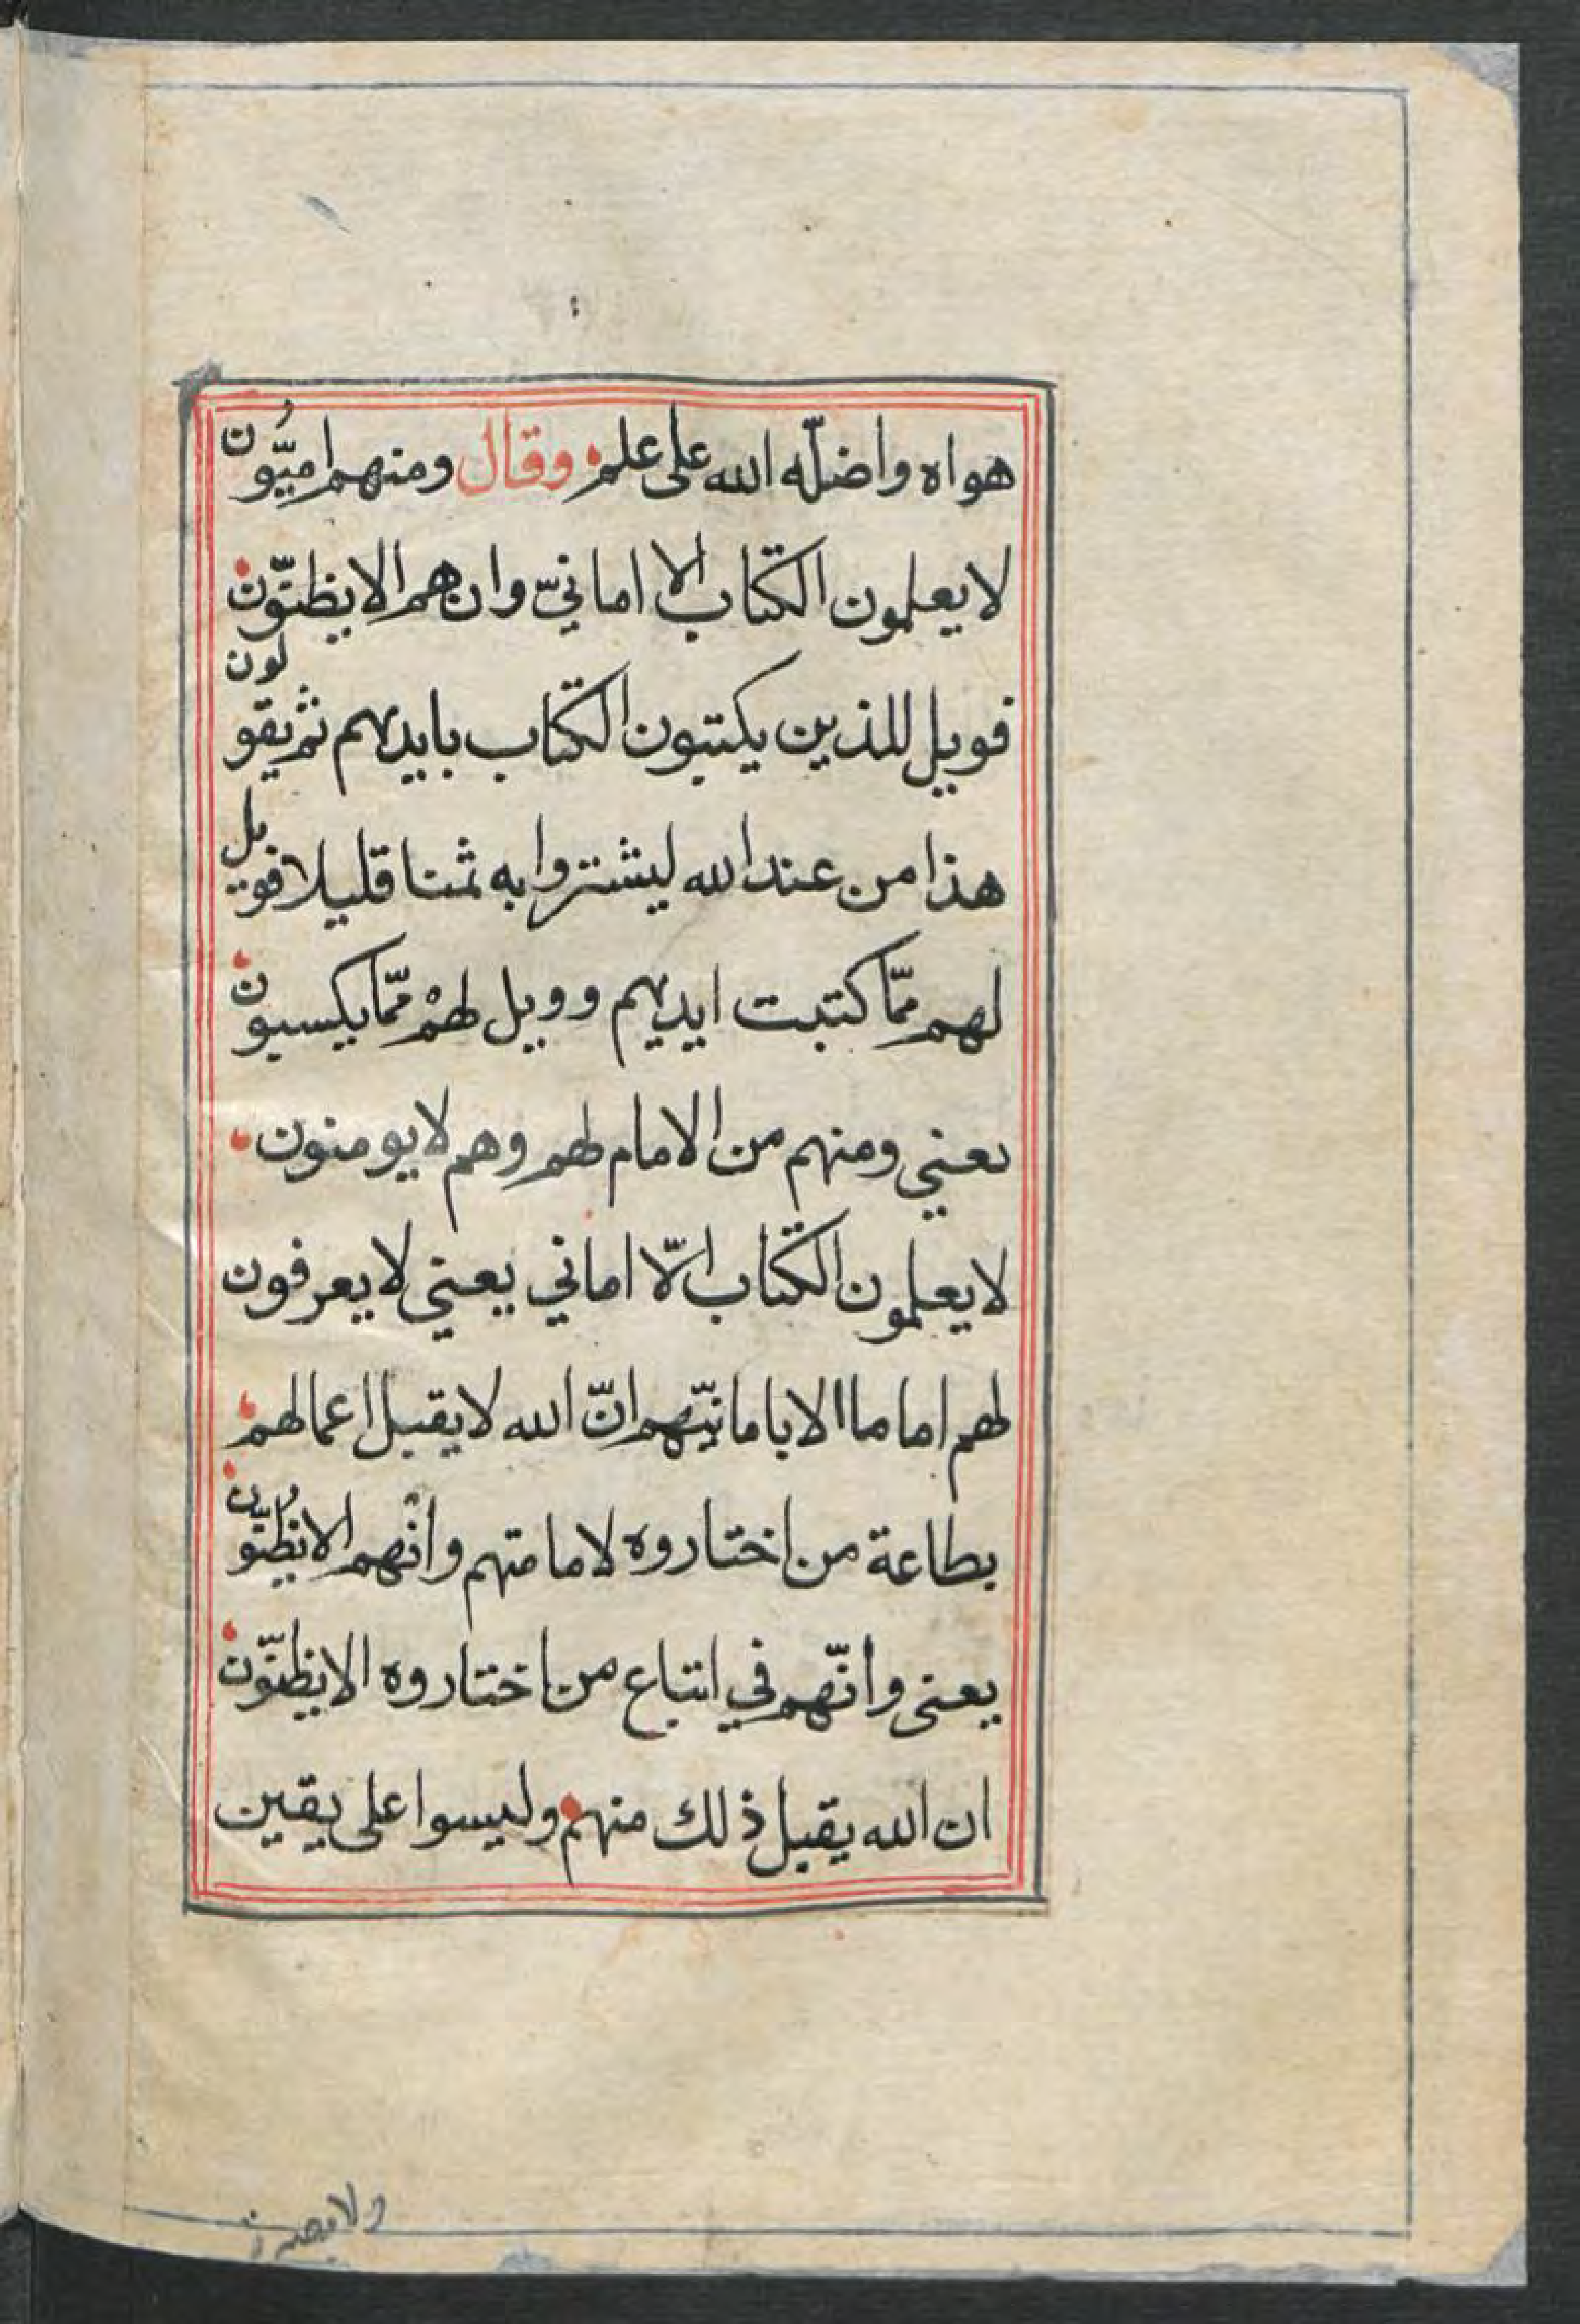 هواه واضلّه الله على علم وقال ومنهم اميُّون
لا يعلمون الكتاب الا امانيّ وان هم الا يظنّون
فويل للذين يكتبون الكتاب بايديهم ثم يقولون
هذا من عند الله ليشتروا به ثمنا قليلا فويل
لهم ممّا كتبت ايديهم وويل لهمْ ممّا يكسبون
يعني ومنهم من الامام لهم وهم لا يومنون
لا يعلمون الكتاب الّا اماني يعني لا يعرفون
لهم اماما الا بامانيّهم انّ الله لا يقبل اعمالهم
بطاعة من اختاروه لامامتهم وانّهم الا يظنّون
يعنى وانّهم في اتباع من اختاروه الا يظنّون
ان الله يقبل ذلك منهم وليسوا على يقين
ولا بصيرة